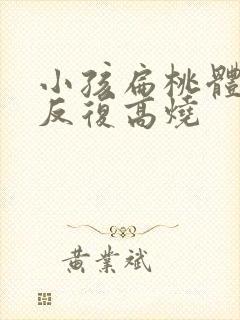 小孩扁桃體
反復高燒
黃業斌